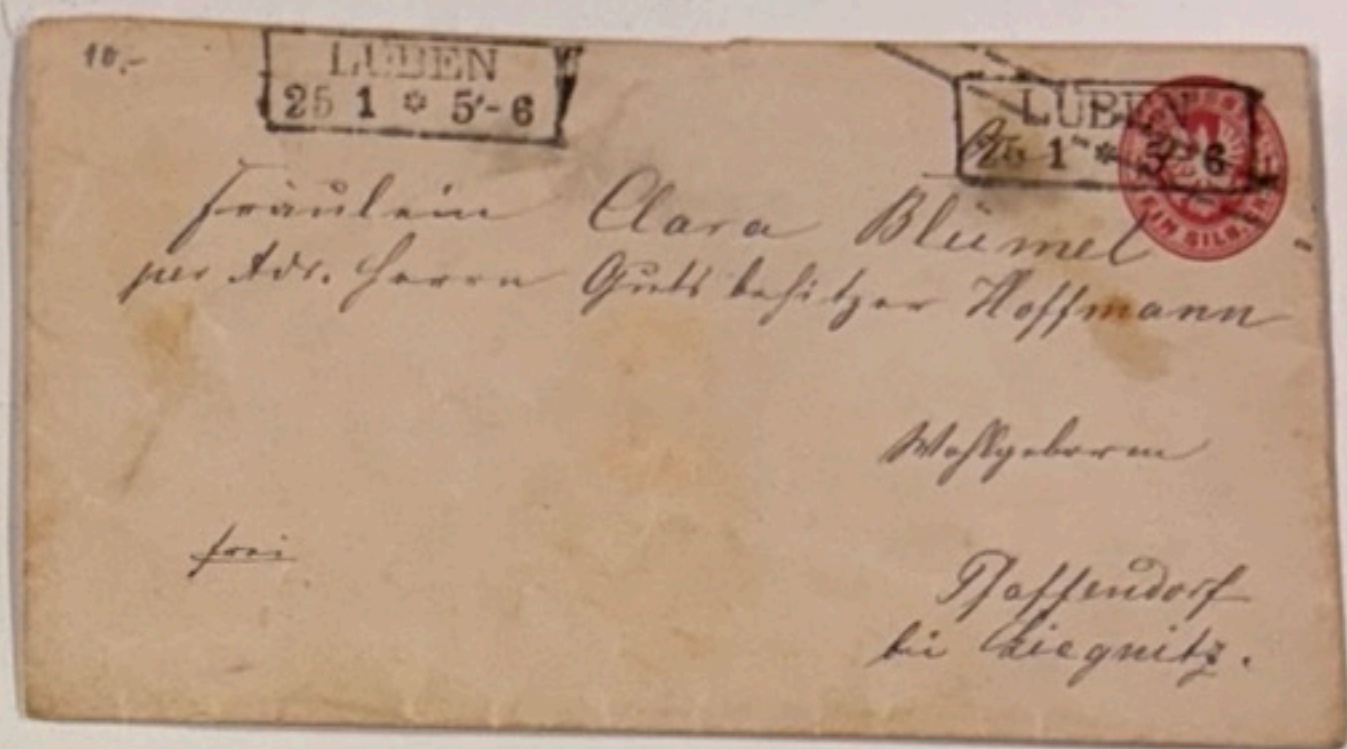 10.-
LÜBEN
25 1 * 5-6
LÜBEN
25 1 * 5-6
EIN SILB. GR.
Fräulein Clara Blümel
per Adr. Herrn Gutsbesitzer Hoffmann
Wohlgeboren
frei
Pfaffendorf
bei Liegnitz.